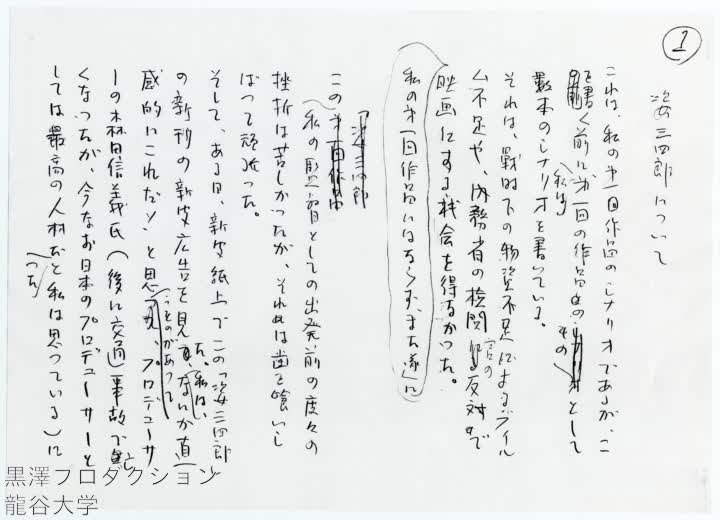 1
姿三四郎について
これは、私の第一回作品のシナリオであるが、こ
を書く前に、私は第一回の作品そのものとして
数本のシナリオを書いている。
それは、戦時下の物資不足によるフイル
ム不足や、内務省の検閲官の反対で
映画にする機会を得なかった。
私の第一回作品にはならず、また遂に
この
「姿三四郎
私の監督としての出発前の度々の
挫折は苦しかったが、それは歯を喰いし
ばって頑張った。
そして、ある日、新聞紙上でこの「姿三四郎」
の新刊の新聞広告を見た。私は、なにか直
感的にこれだ!と思
ったものがあって、プロデューサ
ーの森田信義氏(後に交通事故で亡
くなったが、今なお日本のプロデューサーと
しては最高の人材だった
と私は思っている)に
黒澤プロダクション
龍谷大学